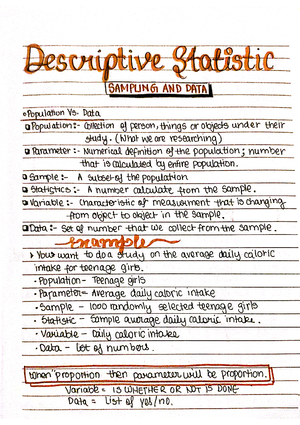 Descriptive Statistic
SAMPLING AND DATA
Population Vs. Data
Population:- Collection of person, things or objects under their
study. (What we are researching)
Parameter:- Numerical definition of the population; number
that is calculated by entire population.
Sample:- A subset of the population
Statistics:- A number calculate from the sample.
Variable:- Characteristic of measurement that is changing
from object to object in the sample.
Data:- Set of number that we collect from the sample.
Example
> Your want to do a study on the average daily caloric
intake for teenage girls.
•Population- Teenage girls
•Parameter- Average daily caloric intake
•Sample - 1000 randomly selected teenage girls
•Statistic - Sample average daily caloric intake.
•Variable - Daily caloric intake
•Data - Lot of numbers.
When "proportion" then parameter will be proportion.
Variable = IS WHETHER OR NOT IS DONE
Data = List of yes/no.